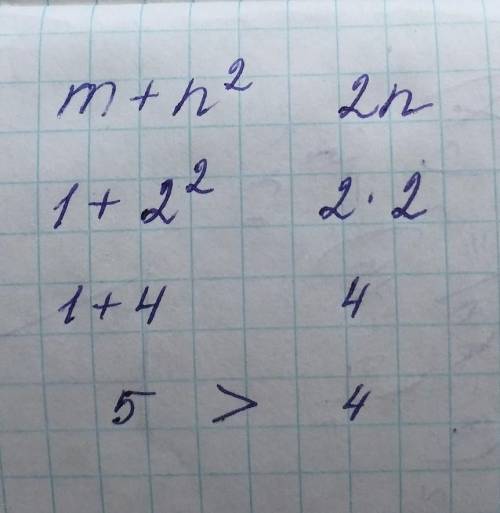 m + n² 2n
1 + 2² 2 · 2
1 + 4 4
5 > 4